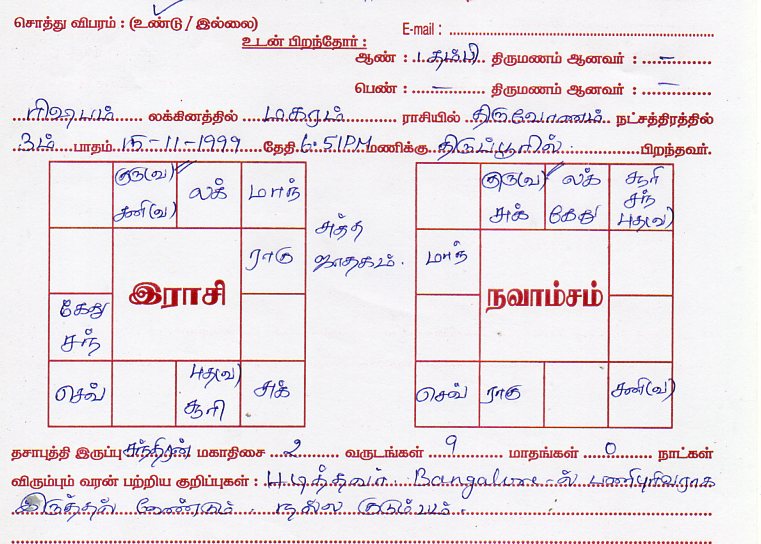 சொத்து விபரம் : (உண்டு / இல்லை)
E-mail :
உடன் பிறந்தோர் :
ஆண் : 1 தம்பி திருமணம் ஆனவர் : –
பெண் : – திருமணம் ஆனவர் : –
ரிஷபம் லக்கினத்தில் மகரம் ராசியில் திருவோணம் நட்சத்திரத்தில்
3ம் பாதம் 15-11-1999 தேதி 6:51PM மணிக்கு திருப்பூரில் பிறந்தவர்.
குரு(வ) சனி(வ) லக் மாந்
ராகு
சுத்த ஜாதகம்.
இராசி
கேது சந்
செவ் புத(வ) சூரி சுக்
குரு(வ) சுக் லக் கேது சூரி சந் புத(வ)
மாந்
நவாம்சம்
செவ் ராகு சனி(வ)
தசாபுத்தி இருப்பு சந்திரன் மகாதிசை 2 வருடங்கள் 9 மாதங்கள் 0 நாட்கள்
விரும்பும் வரன் பற்றிய குறிப்புகள் : படித்தவர் Bangalore-ல் பணிபுரிவராக
இருத்தல் வேண்டும். நல்ல குடும்பம்.